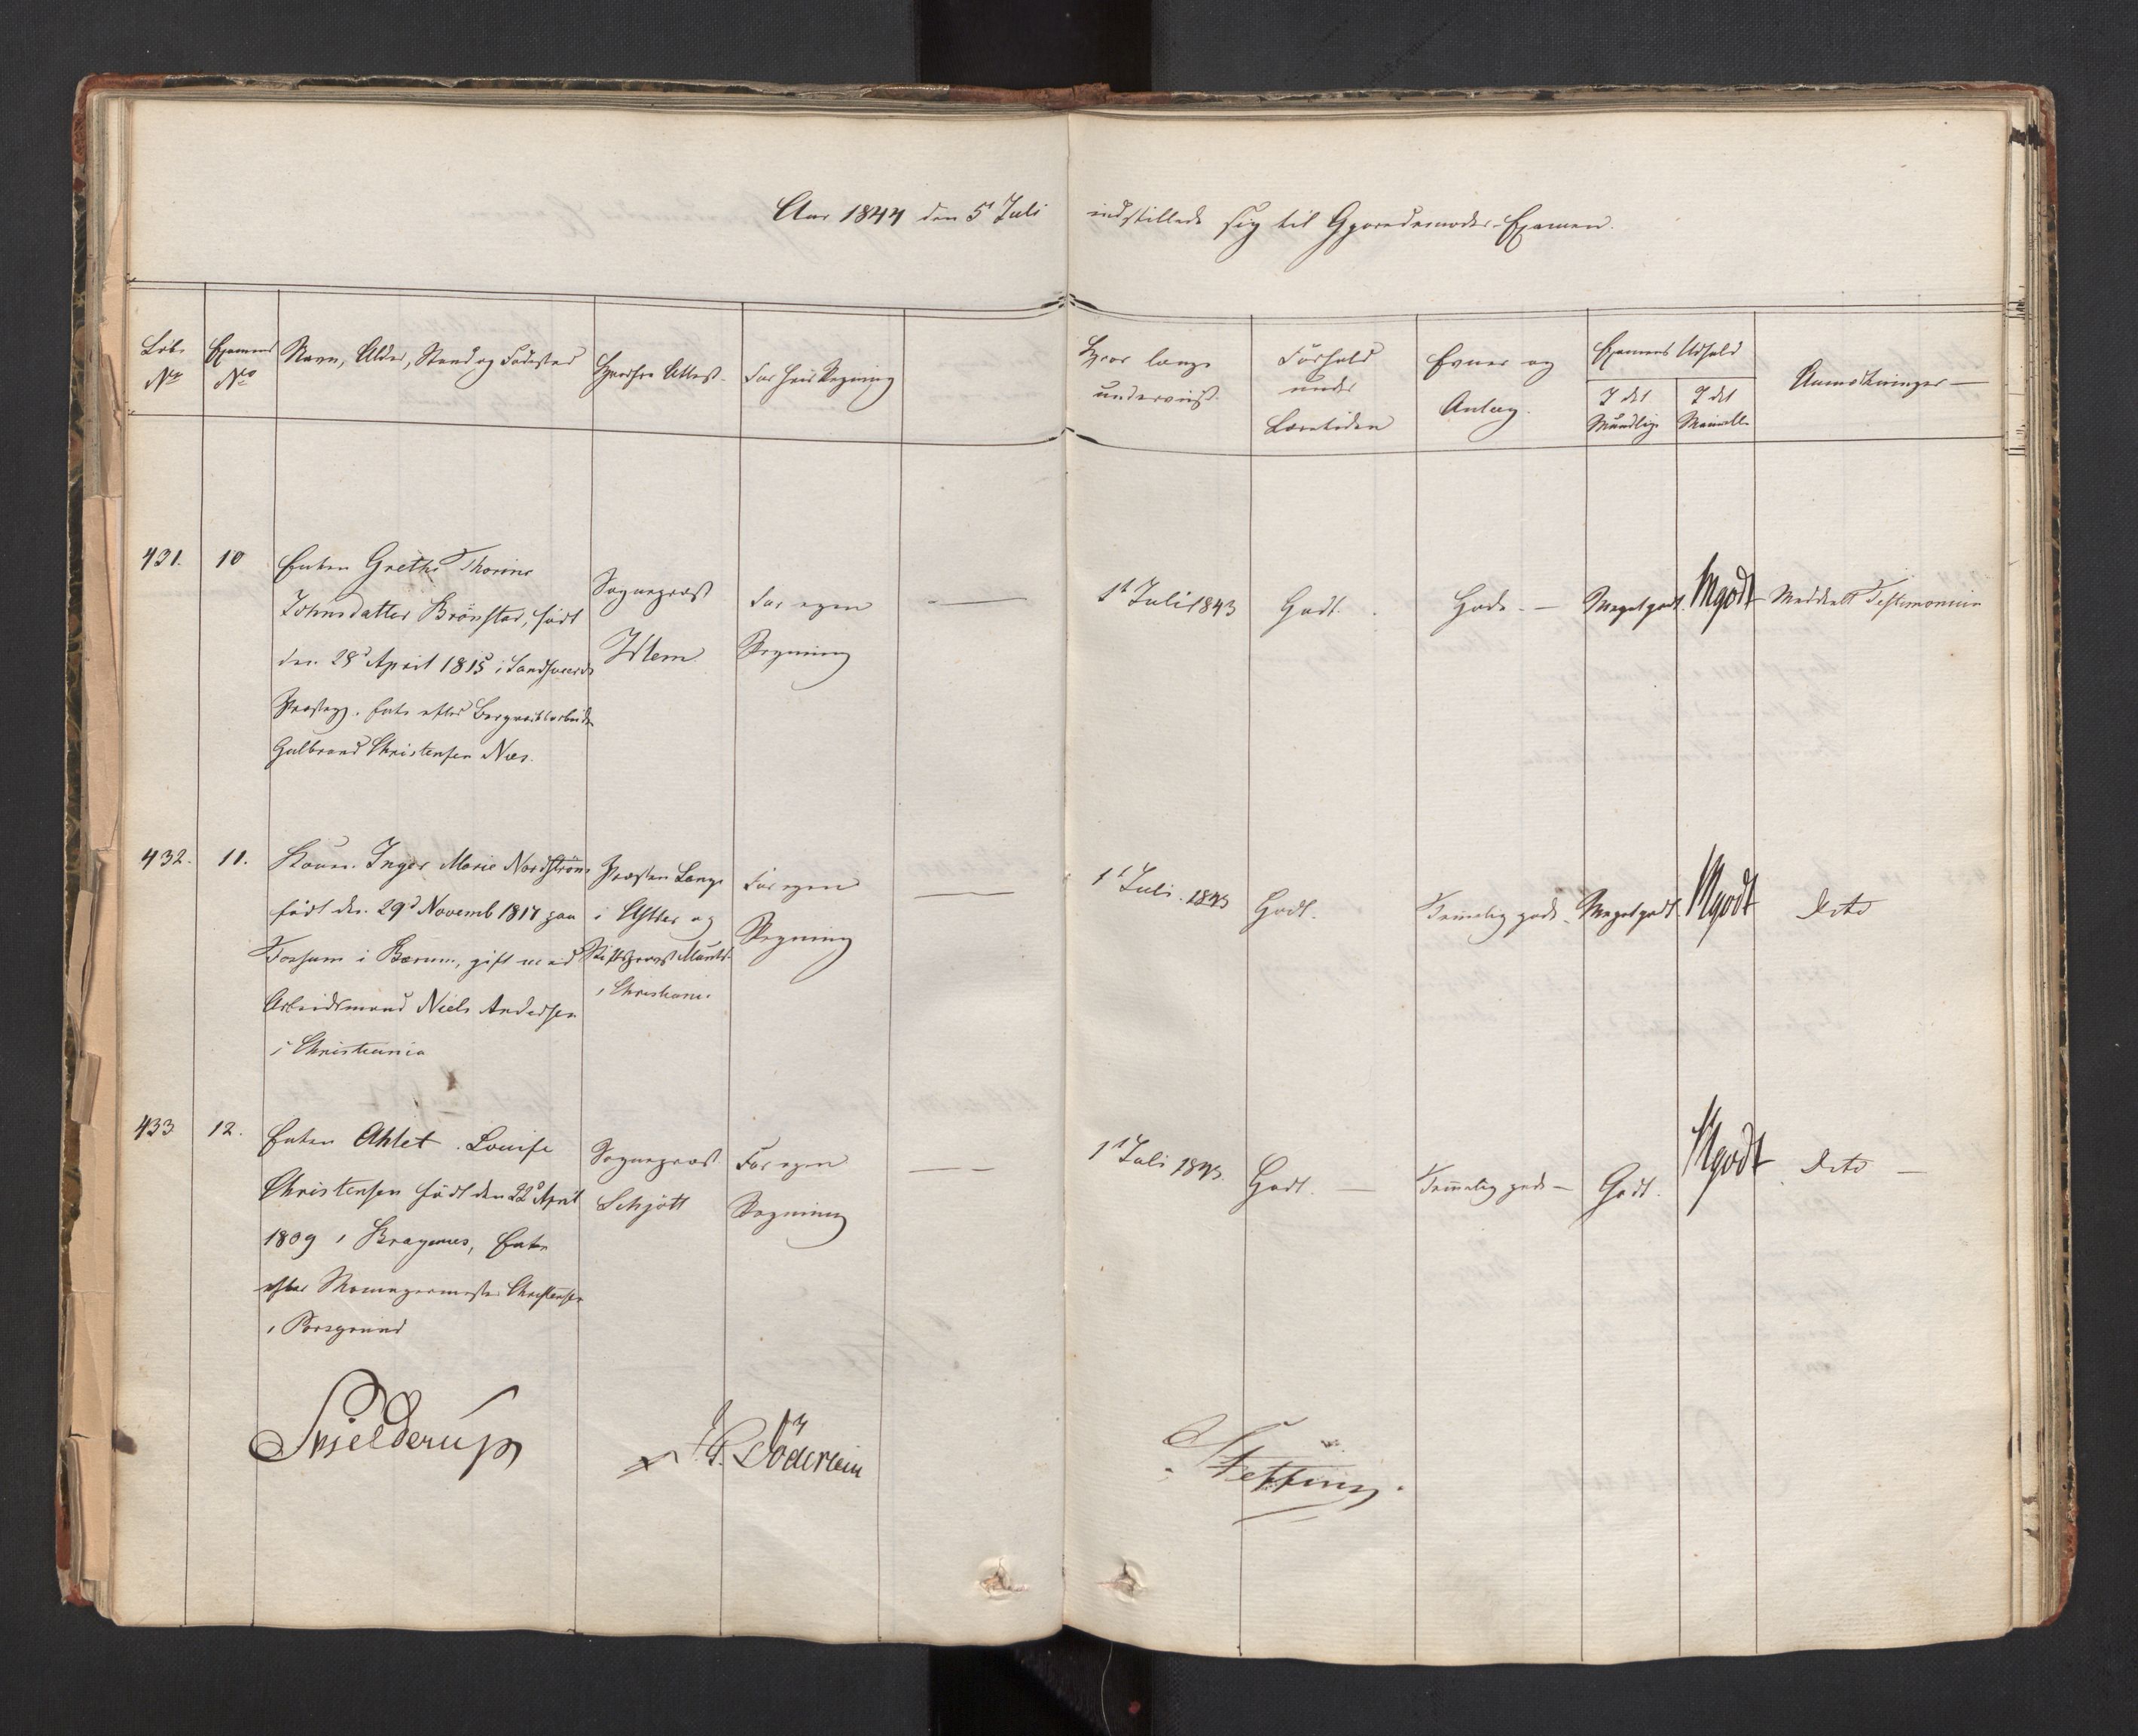 Aar 1844 den 5t Juli indstillede sig til Gjordemoder-Examen.
Löbe No
Examens No
Navn, Alder, Stand og Fødested
Hvorfra Attest.
For hvis Regning
Hvor længe underviist.
Forhold under Læretiden
Evner og Anlæg.
Examens Udfald
I det Mundlige
I det Manuelle
Anmærkninger
431.
10
Enken Grethe Thorine
Johnsdatter Brönstad, født
den 28d April 1815 i
Præstegj. Enke efter Bergværksarbeider
Gulbrand Christensen Næs.
Sogneprest
For egen
Regning
1t Juli 1843
Godt.
Gode.
Meget godt.
Mgodt
Meddeelt Testimonium
432.
11.
Konen Inger Marie Nordström
født den 29d Novemb 1817 paa
Fossum i Bærum, gift med
Arbeidsmand Niels Andersen
i Christiania
Præsten Lange
i Asker og
Stiftsprovst
i Christiania
For egen
Regning
1t Juli 1843
Godt.
Temmelig gode
Meget godt.
Mgodt
dito
433
12.
Enken Ahlet Louise
Christensen født den 22d April
1809 i Bragernes, Enke
efter Christensen
i Porsgrund
Sogneprest
Schjött
For egen
Regning
1t Juli 1843.
Godt.
Temmelig gode
Godt.
Mgodt
dito
Skjelderup
Döderlein